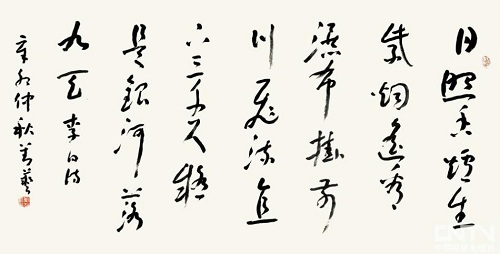 日照香爐生
紫烟遥看
瀑布掛前
川飛流直
下三千尺疑
是銀河落
九天 李白诗
辛卯仲秋